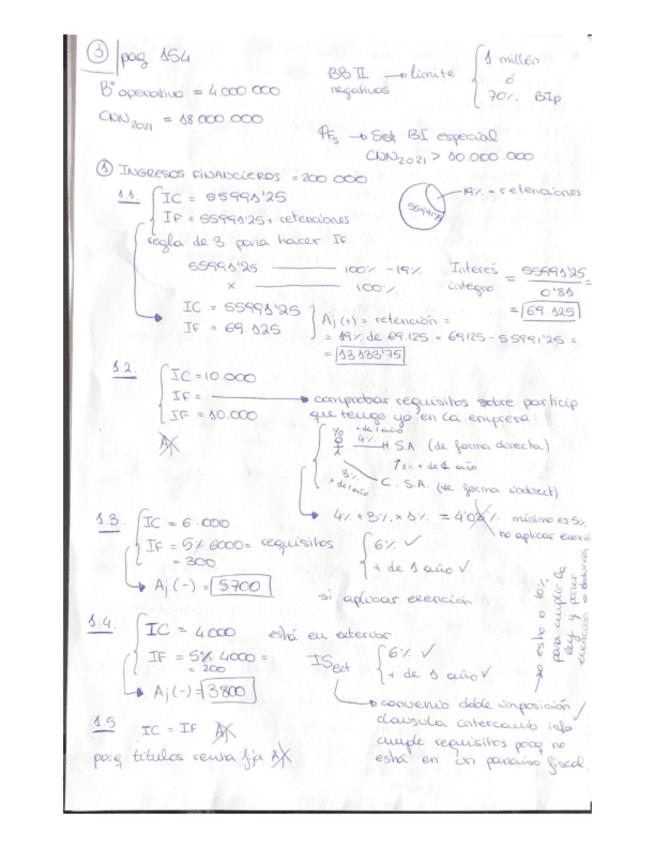 3 pag 154
Bº operativo = 4 000 000
CNN 2021 = 18 000 000
BBII negativos → límite { 1 millón ó 70% BIp
PFs → Set BI especial
CNN 2021 > 10.000.000
① INGRESOS FINANCIEROS = 200 000
1.1. { IC = 55991'25
IF = 55991'25 + retenciones
19% = retenciones
regla de 3 para hacer IF
55991'25 ——— 100% -19%
x ——— 100%
Interés íntegro = 55991'25 / 0'81 =
= 69.125
IC = 55991'25
IF = 69.125
Aj (+) = retención =
= 19% de 69.125 = 69125 - 55991'25 =
= 13133'75
1.2. { IC = 10.000
IF = → comprobar requisitos sobre particip
que tengo yo en la empresa
IF = 10.000
yo + de 1 año
4% H S.A (de forma directa)
+ de 1 año
3% + de 1 año C. S.A. (de forma indirect)
mínimo es 5%
no aplicar
1.3. { IC = 6.000
IF = 5% 6000 = requisitos
= 300
{ 6% ✓
+ de 1 año ✓
Aj (-) = 5700
si aplicar exención
1.4. { IC = 4000 está en exterior
IF = 5% 4000 =
= 200
{ 6% ✓
+ de 1 año ✓
Aj (-) = 3800
→ convenio doble imposición ✓
clausula intercamb info
cumple requisitos porq no
está en un paraíso fiscal.
→ o esto o 10%
para cumplir la
ley y poner
1.5 IC = IF
porq títulos renta fija